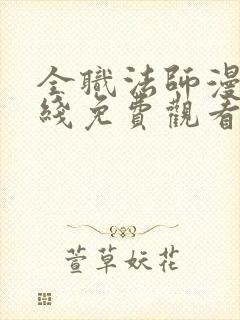 全職法師漫
綫免費觀看
萱草妖花